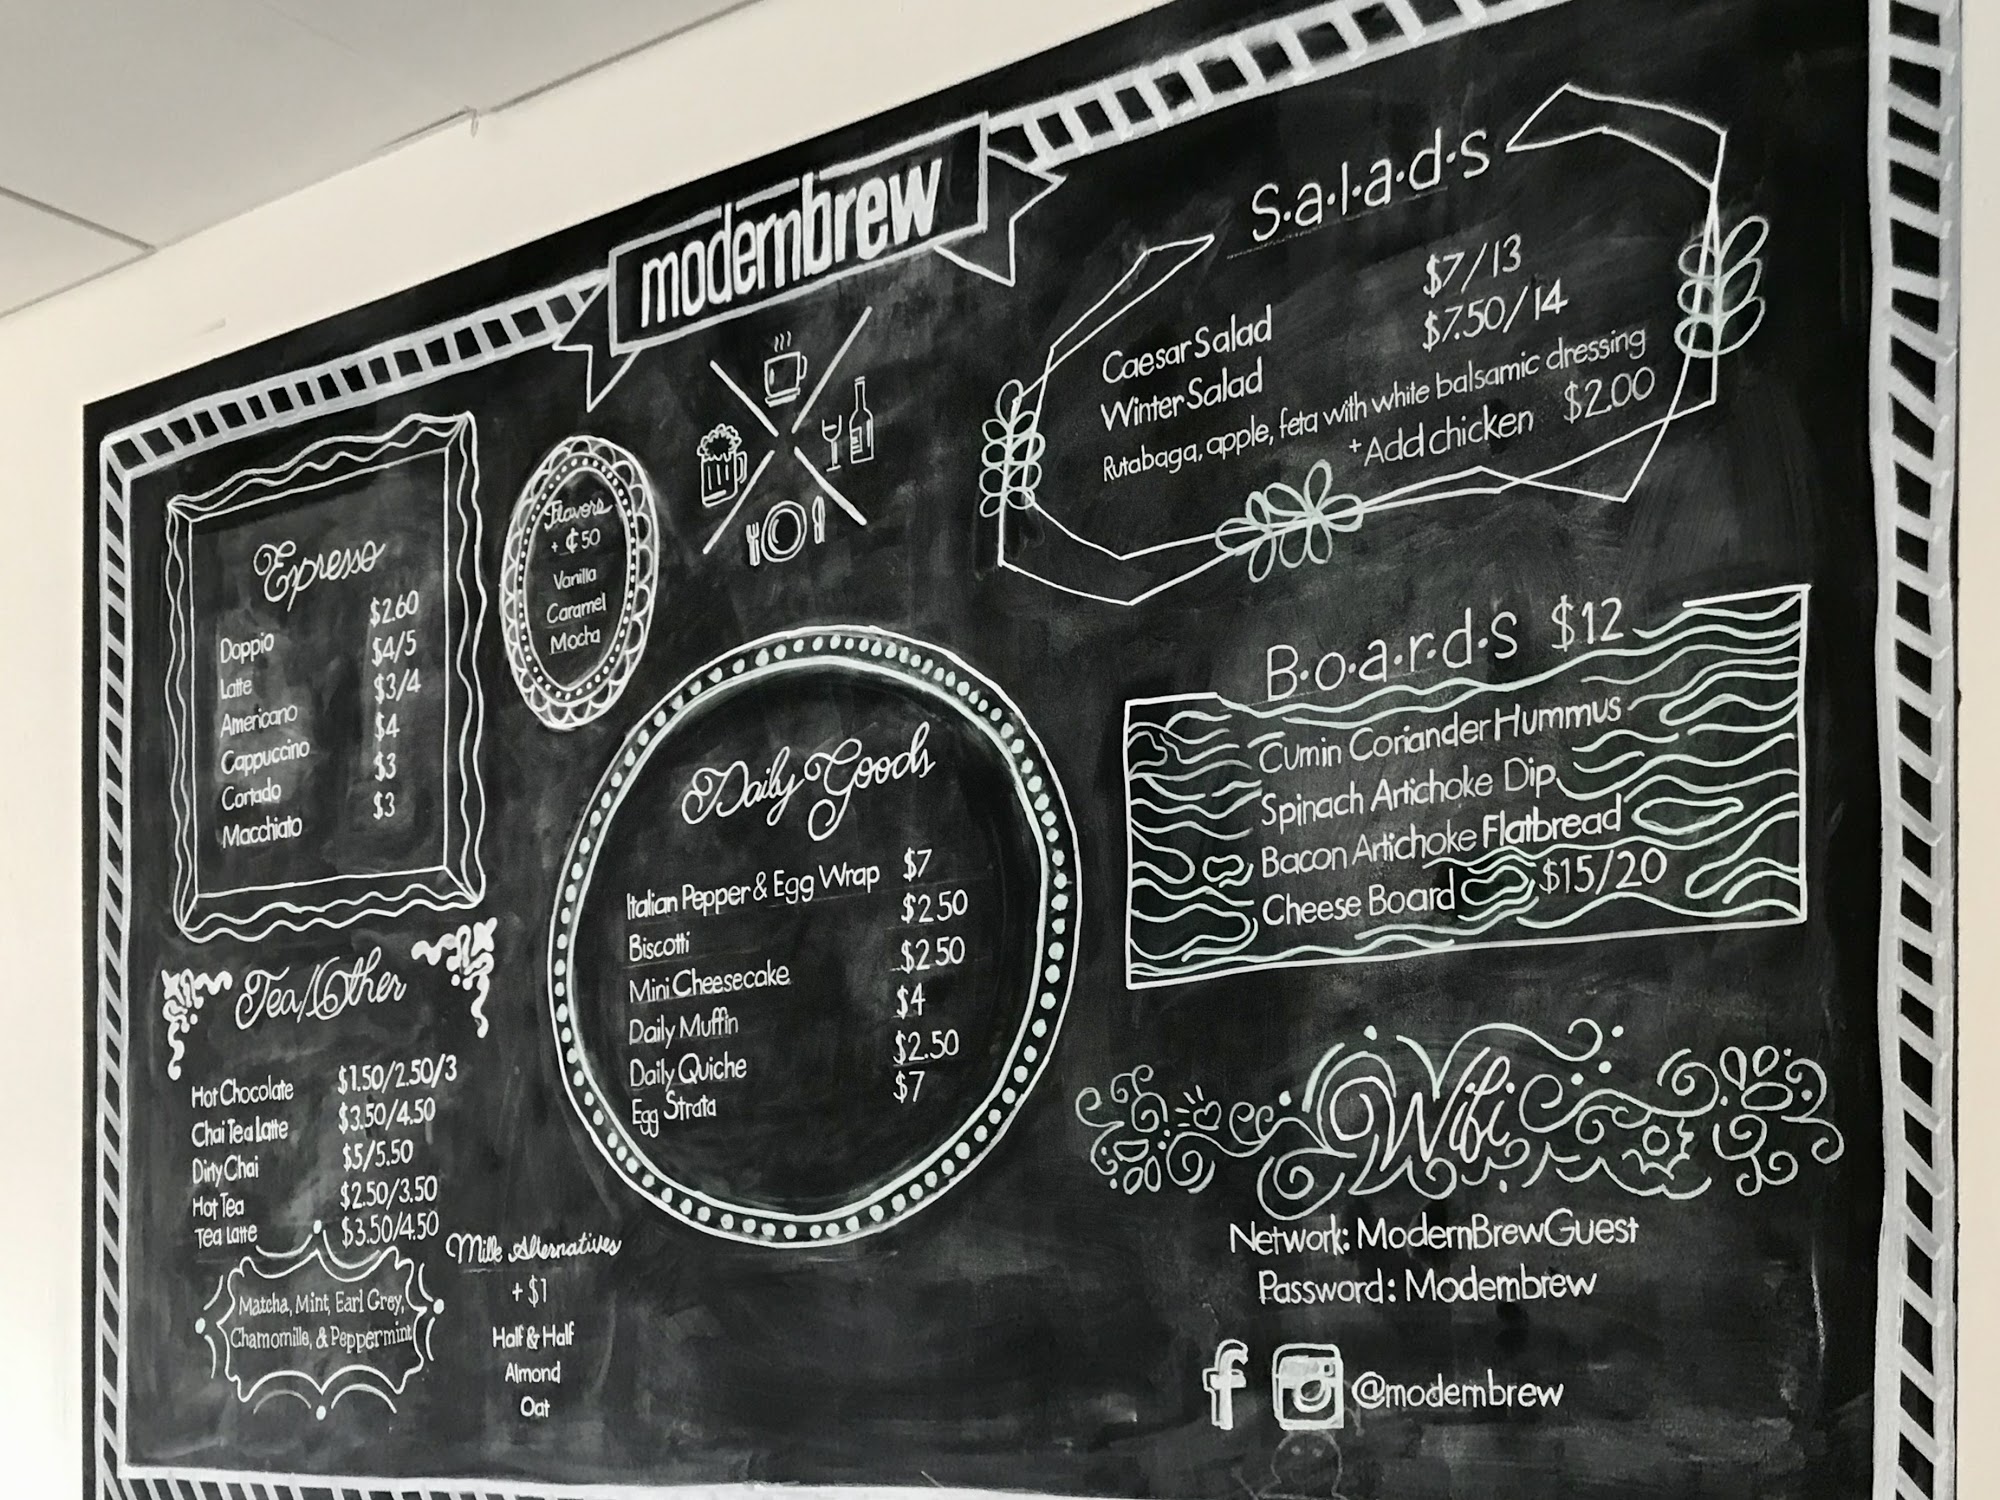 modernbrew
Espresso
Doppio $2.60
Latte $4/5
Americano $3/4
Cappuccino $4
Cortado $3
Macchiato $3
Flavors
+ ¢50
Vanilla
Caramel
Mocha
Tea/Other
Hot Chocolate $1.50/2.50/3
Chai Tea Latte $3.50/4.50
Dirty Chai $5/5.50
Hot Tea $2.50/3.50
Tea Latte $3.50/4.50
Matcha, Mint, Earl Grey,
Chamomille, & Peppermint
Milk Alternatives
+ $1
Half & Half
Almond
Oat
Daily Goods
Italian Pepper & Egg Wrap $7
Biscotti $2.50
Mini Cheesecake $2.50
Daily Muffin $4
Daily Quiche $2.50
Egg Strata $7
S·a·l·a·d·s
Caesar Salad $7/13
Winter Salad $7.50/14
Rutabaga, apple, feta with white balsamic dressing
+Add chicken $2.00
B·o·a·r·d·s $12
Cumin Coriander Hummus
Spinach Artichoke Dip
Bacon Artichoke Flatbread
Cheese Board $15/20
Wifi
Network: ModernBrewGuest
Password: Modernbrew
f @modernbrew